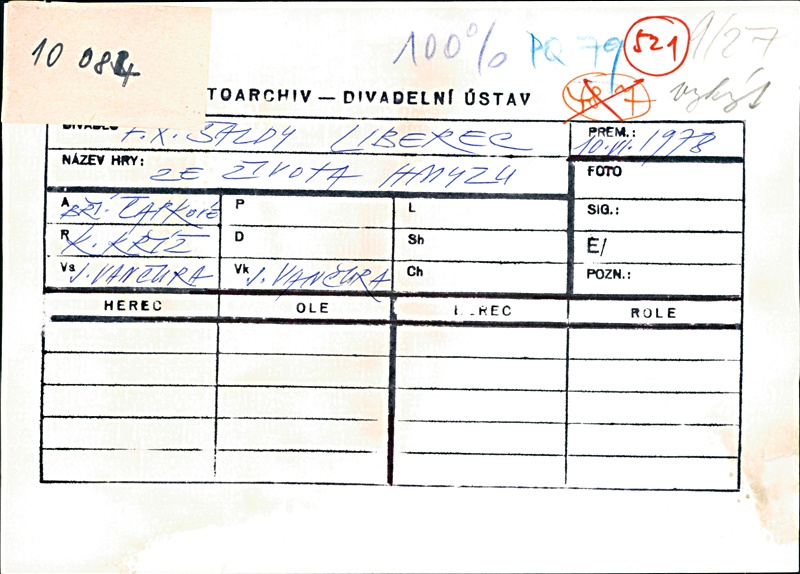 10 084
100% PQ 79 521 1/27
TOARCHIV — DIVADELNÍ ÚSTAV
DIVADLO F. X. ŠALDY LIBEREC
PREM.: 10.VI.1978
NÁZEV HRY: ZE ŽIVOTA HMYZU
FOTO
A BŘÍ. ČAPKOVÉ P L SIG.:
R K. KŘÍŽ D Sh Ė/
Vs J. VANČURA Vk J. VANČURA Ch POZN.:
HEREC OLE EREC ROLE